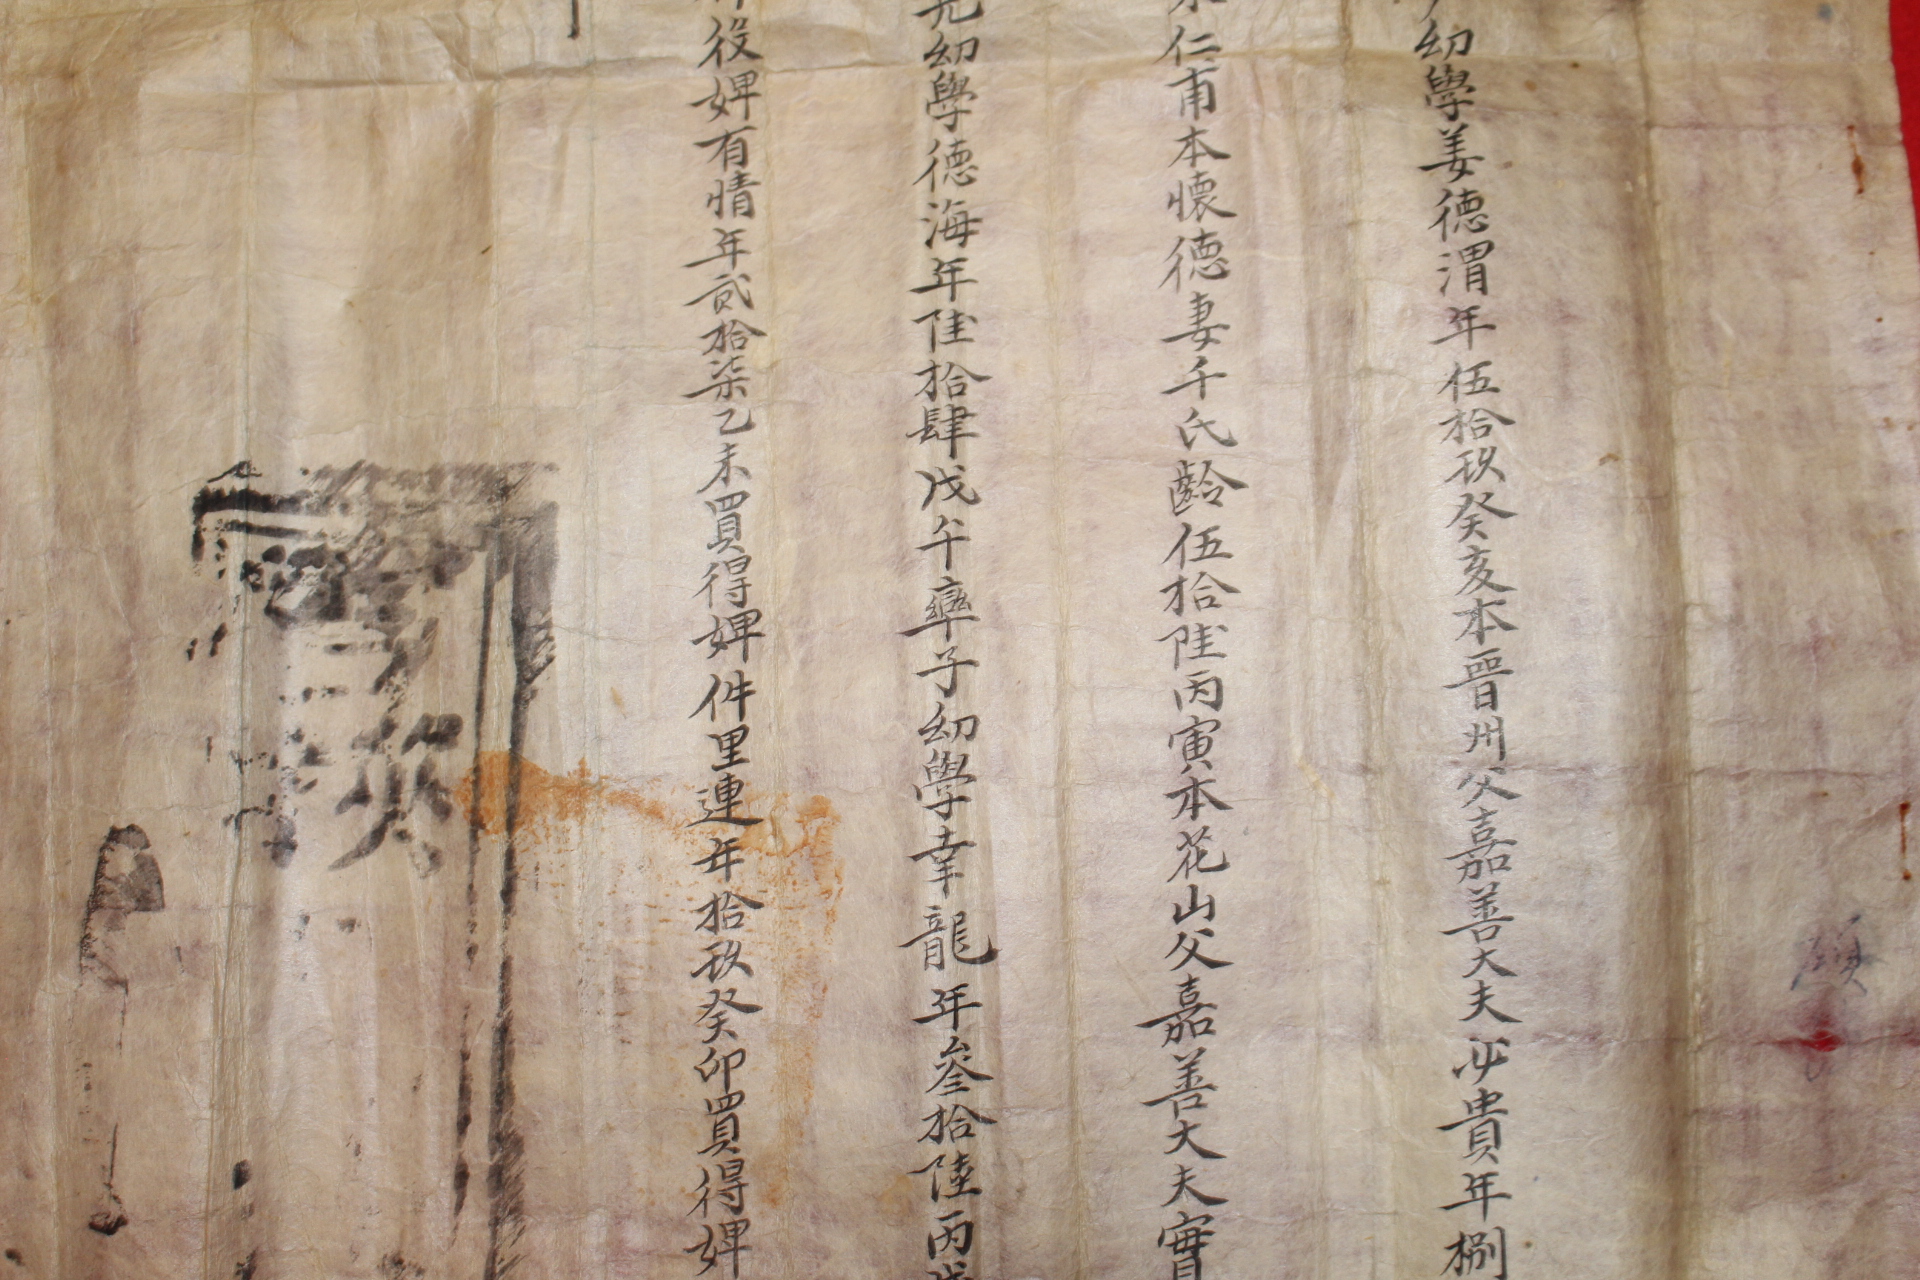 幼學姜德渭年伍拾玖癸亥本晉州父嘉善大夫必貴年捌
仁甫本懷德妻千氏齡伍拾陸丙寅本花山父嘉善大夫實
幼學德海年陸拾肆戊午率子幼學幸龍年叄拾陸丙戌
役婢有情年貳拾柒乙未買得婢件里連年拾玖癸卯買得婢